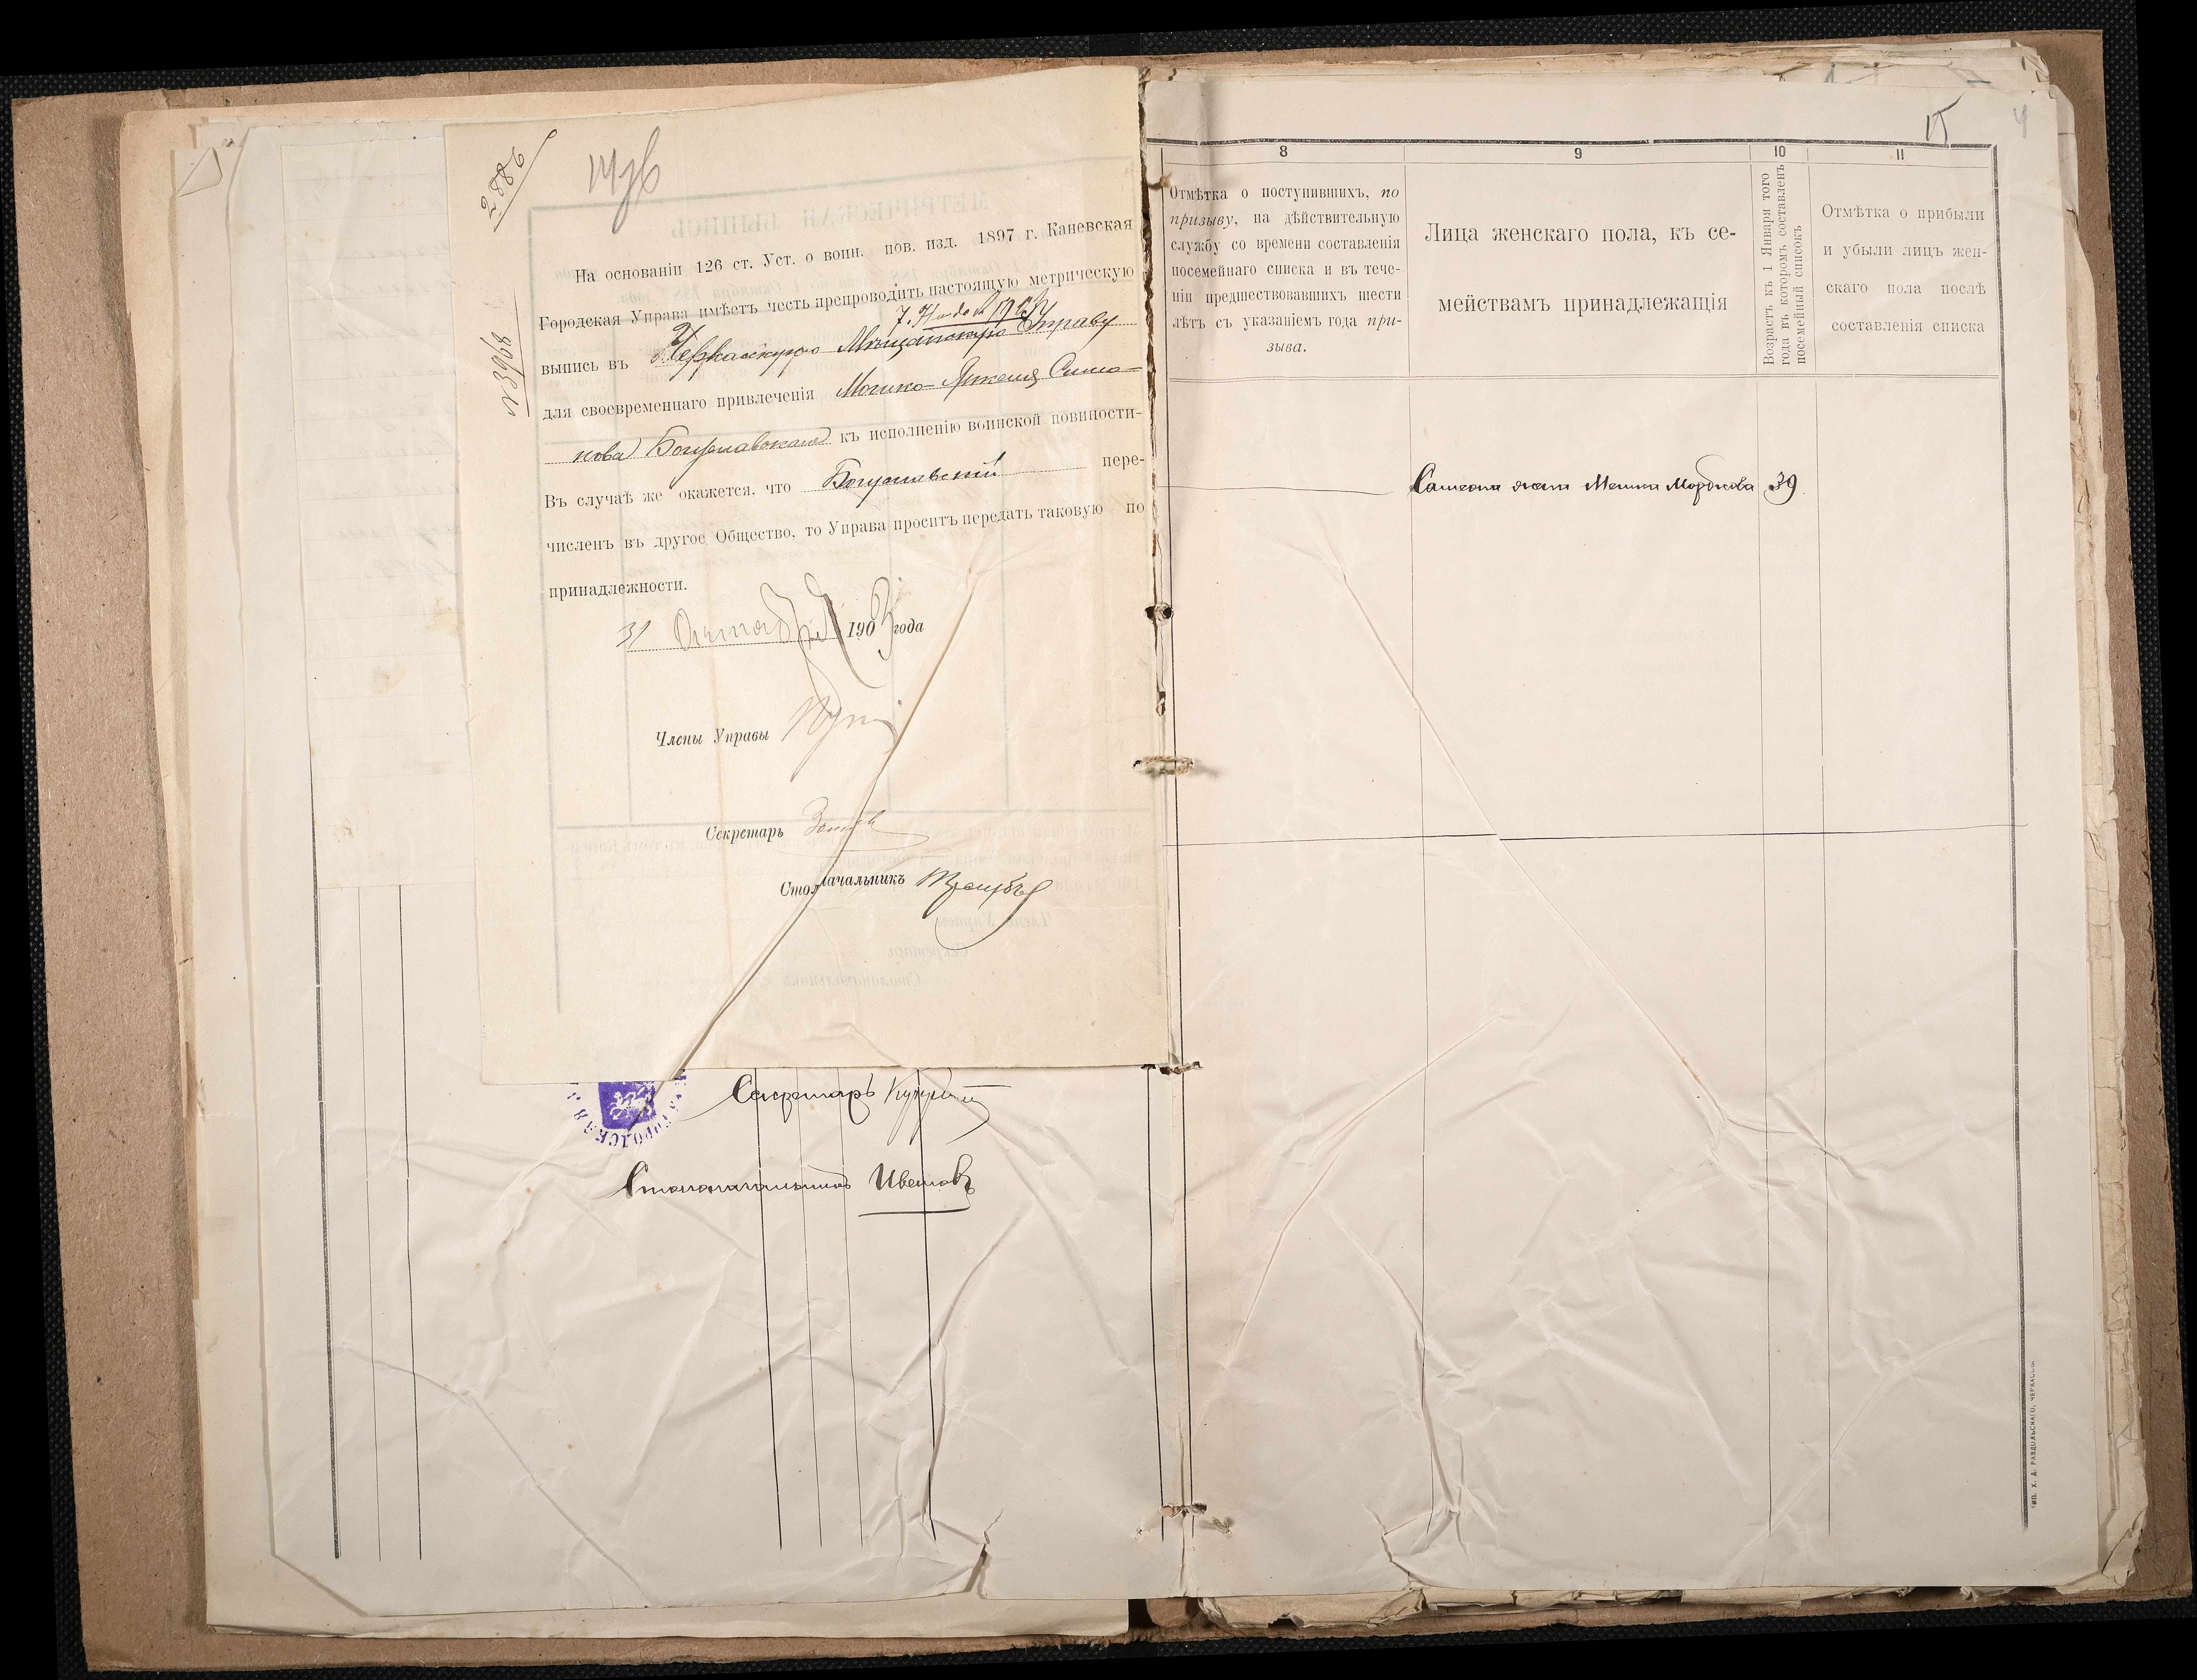 2886
№ 3908
На основаніи 126 ст. Уст. о воин. пов. изд. 1897 г. Каневская
Городская Управа имѣетъ честь препроводить настоящую метрическую
выпись въ Черкасскую Мѣщанскую Управу
для своевременнаго привлеченія Мошко-Янкеля Симо-
нова Богуславскаго къ исполненію воинской повинности-
Въ случаѣ же окажется, что Богуславскій пере-
численъ въ другое Общество, то Управа проситъ передать таковую по
принадлежности.
31 Октября 1903 года
Члены Управы
Секретарь
Столоначальникъ
Секретарь
Столоначальникъ Ивановъ
ГОРОДСКАЯ
15
4
8
9
10
11
Отмѣтка о поступившихъ, по
призыву, на дѣйствительную
службу со времени составленія
посемейнаго списка и въ тече-
ніи предшествовавшихъ шести
лѣтъ съ указаніемъ года при-
зыва.
Лица женскаго пола, къ се-
мействамъ принадлежащія
Возрастъ къ 1 Января того
года въ которомъ составленъ
посемейный списокъ
Отмѣтка о прибыли
и убыли лицъ жен-
скаго пола послѣ
составленія списка
жена Мордкова 39
ТИП. Х. Д. РАЗДОЛЬСКАГО, ЧЕРКАССЫ.